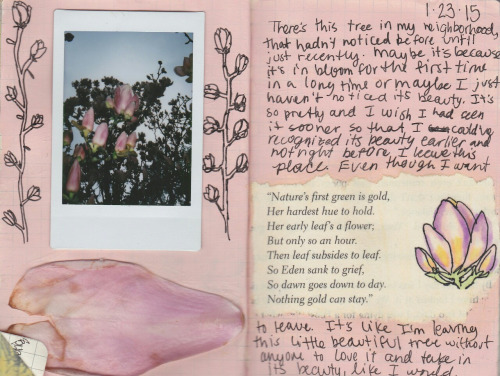 1·23·15
There's this tree in my neighborhood,
that hadn't noticed before until
just recently. maybe it's because
it's in bloom for the first time
in a long time or maybe I just
haven't noticed its beauty. It's
so pretty and I wish I had seen
it sooner so that I could've
recognized its beauty earlier and
not right before I leave this
place. Even though I want
"Nature's first green is gold,
Her hardest hue to hold.
Her early leaf's a flower;
But only so an hour.
Then leaf subsides to leaf.
So Eden sank to grief,
So dawn goes down to day.
Nothing gold can stay."
to leave. It's like I'm leaving
this little beautiful tree without
anyone to love it and take in
its beauty, like I would.